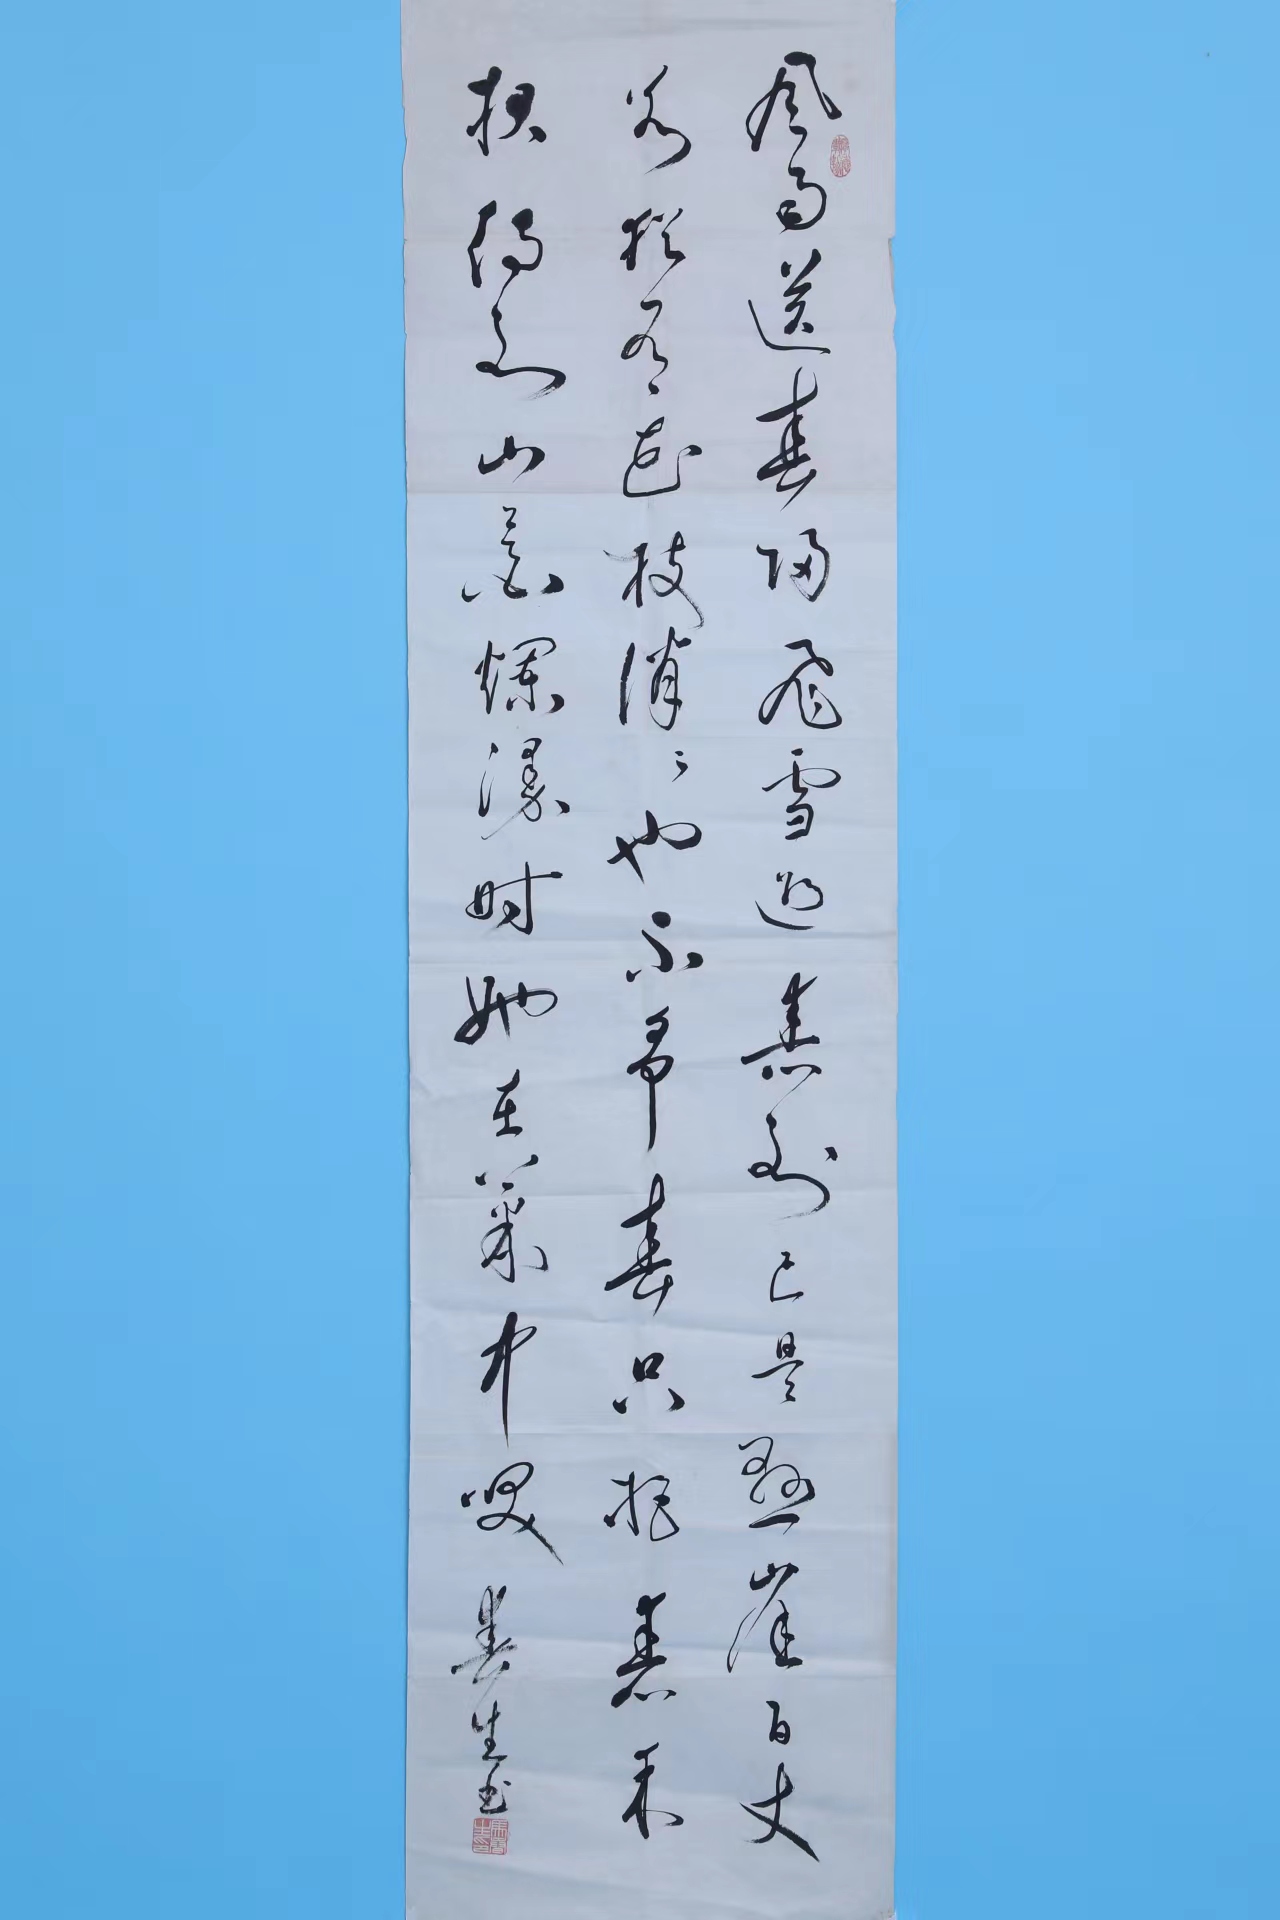 风雨送春归飞雪迎春到已是悬崖百丈
冰犹有花枝俏〻也不争春只把春来
报待到山花烂漫时她在丛中笑
生书